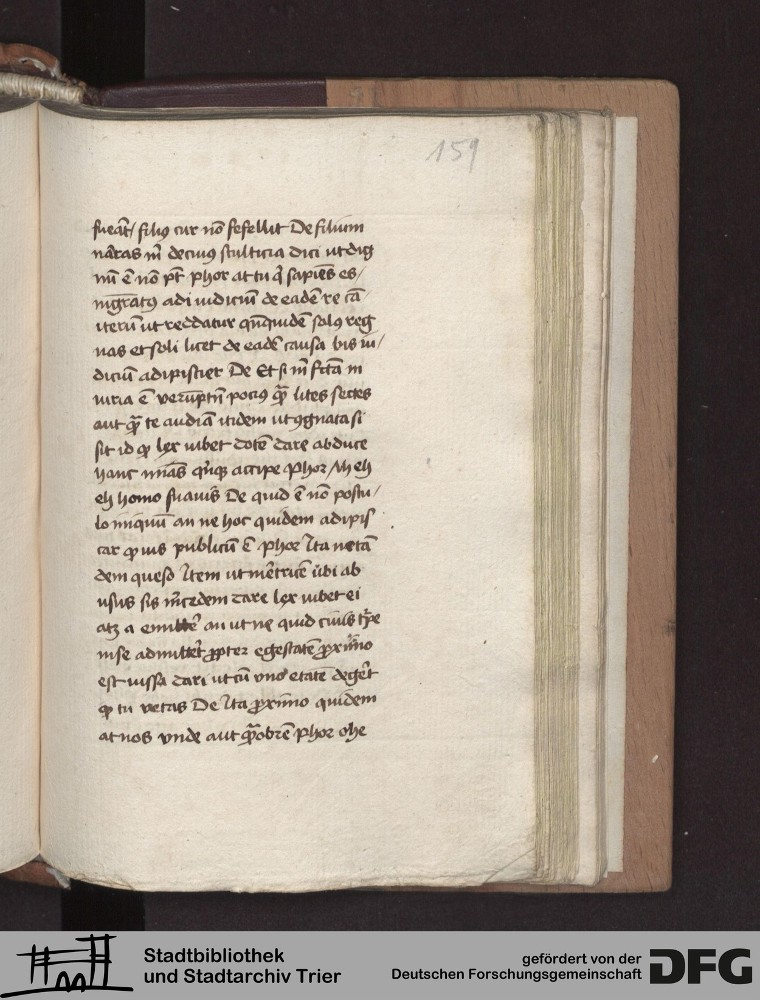 159
fueāt / filiꝰ cur nō fefellit De filium
nāras m̄ de cuiꝰ stulticia dici ut dig
nū ē nō pt̄ phor at tu q̄ sapiēs es /
mgrātꝰ adi iudiciū de eadē re cā
iterū ut reddatur qn̄quidē solꝰ reg
nas et soli licet de eadē causa bis iu /
diciū adipiscier De Et si m̄ fc̄tā in
iuria ē verūptn̄ pociꝰ q̄ꝫ lites secter
aut q̄ꝫ te audiā itidem ut ꝯgnata si
sit id qꝫ lex iubet dotē dare abduce
hanc mīas qn̄qꝫ accipe Phor Ah eh
eh homo suauis De quid ē nō postu /
lo iniquū an ne hoc quidem adipis
car qꝫ ius publicū ē Phor Ita netā
dem queso Item ut mētricē ubi ab
usus sis m̄cedem dare lex iubet ei
atqꝫ amittē an ut ne quid ciuis tꝑe
in se admittēt ꝓpter egestatē ꝓximo
est iussa dari ut cū vno etatē degēt
qꝫ tu vetas De Ita ꝓximo quidem
at nos vnde aut q̄ꝫobrē Phor ohe
Stadtbibliothek
und Stadtarchiv Trier
gefördert von der
Deutschen Forschungsgemeinschaft
DFG